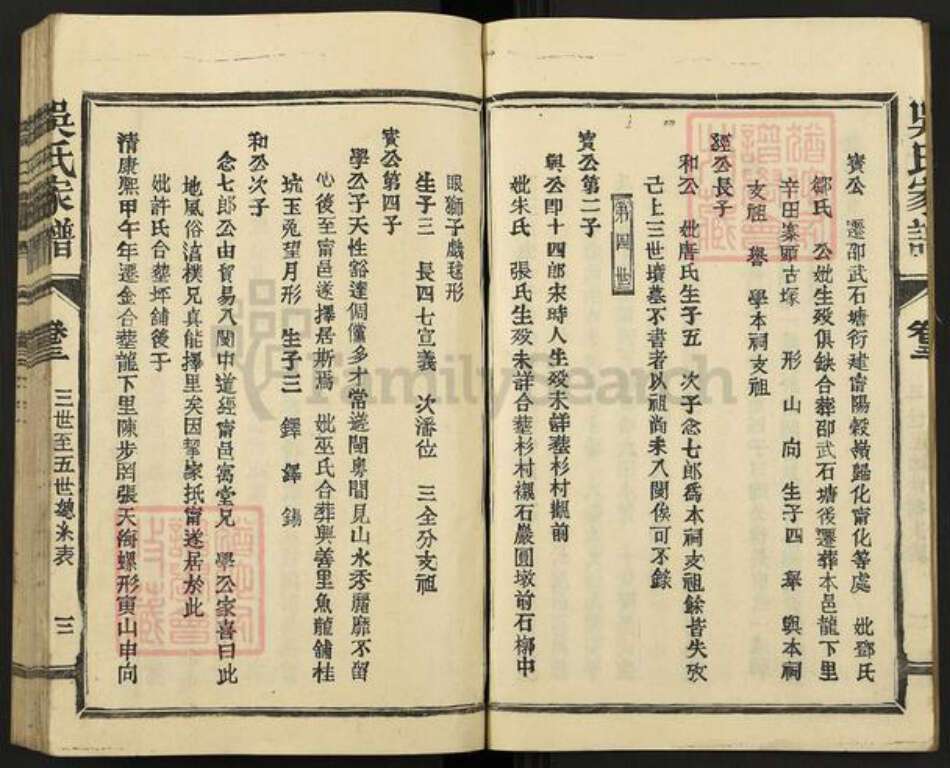 寳公 遷邵武石塘衍建甯陽穀嶺歸化甯化等處 妣鄧氏
鄒氏 公妣生殁俱缺合葬邵武石塘後遷葬本邑龍下里
辛田寨頭古塚 形 山 向 生子四 舉 與本祠
支祖 譽 學本祠支祖
經公長子
和公 妣唐氏生子五 次子念七郎爲本祠支祖餘皆失攷
己上三世墳墓不書者以祖尚未入閩俟可不錄
第四世
寳公第二子
與公卽十四郎宋時人生殁未詳塟杉村觀前
妣朱氏 張氏生殁未詳合塟杉村襯石嚴圓墩前石槨中
眼獅子戲毬形
生子三 長四七宣義 次潘位 三全分支祖
寳公第四子
學公子天性豁達倜儻多才常遊閩粵間見山水秀麗靡不留
心後至甯邑遂擇居斯焉 妣巫氏合葬興善里魚龍舖桂
坑玉兎望月形 生子三 鐸 鐸 錫
和公次子
念七郎公由貿易入閩中道經甯邑寓堂兄 學公家喜曰此
地風俗渲樸兄真能擇里矣因挈家抵甯遂居於此
妣許氏合塟坪舖後于
清康熙甲午年遷金合塟龍下里陳步罔張天海螺形寅山申向
吳氏家譜
卷三
三世至五世
表
三
吳氏家譜
卷三